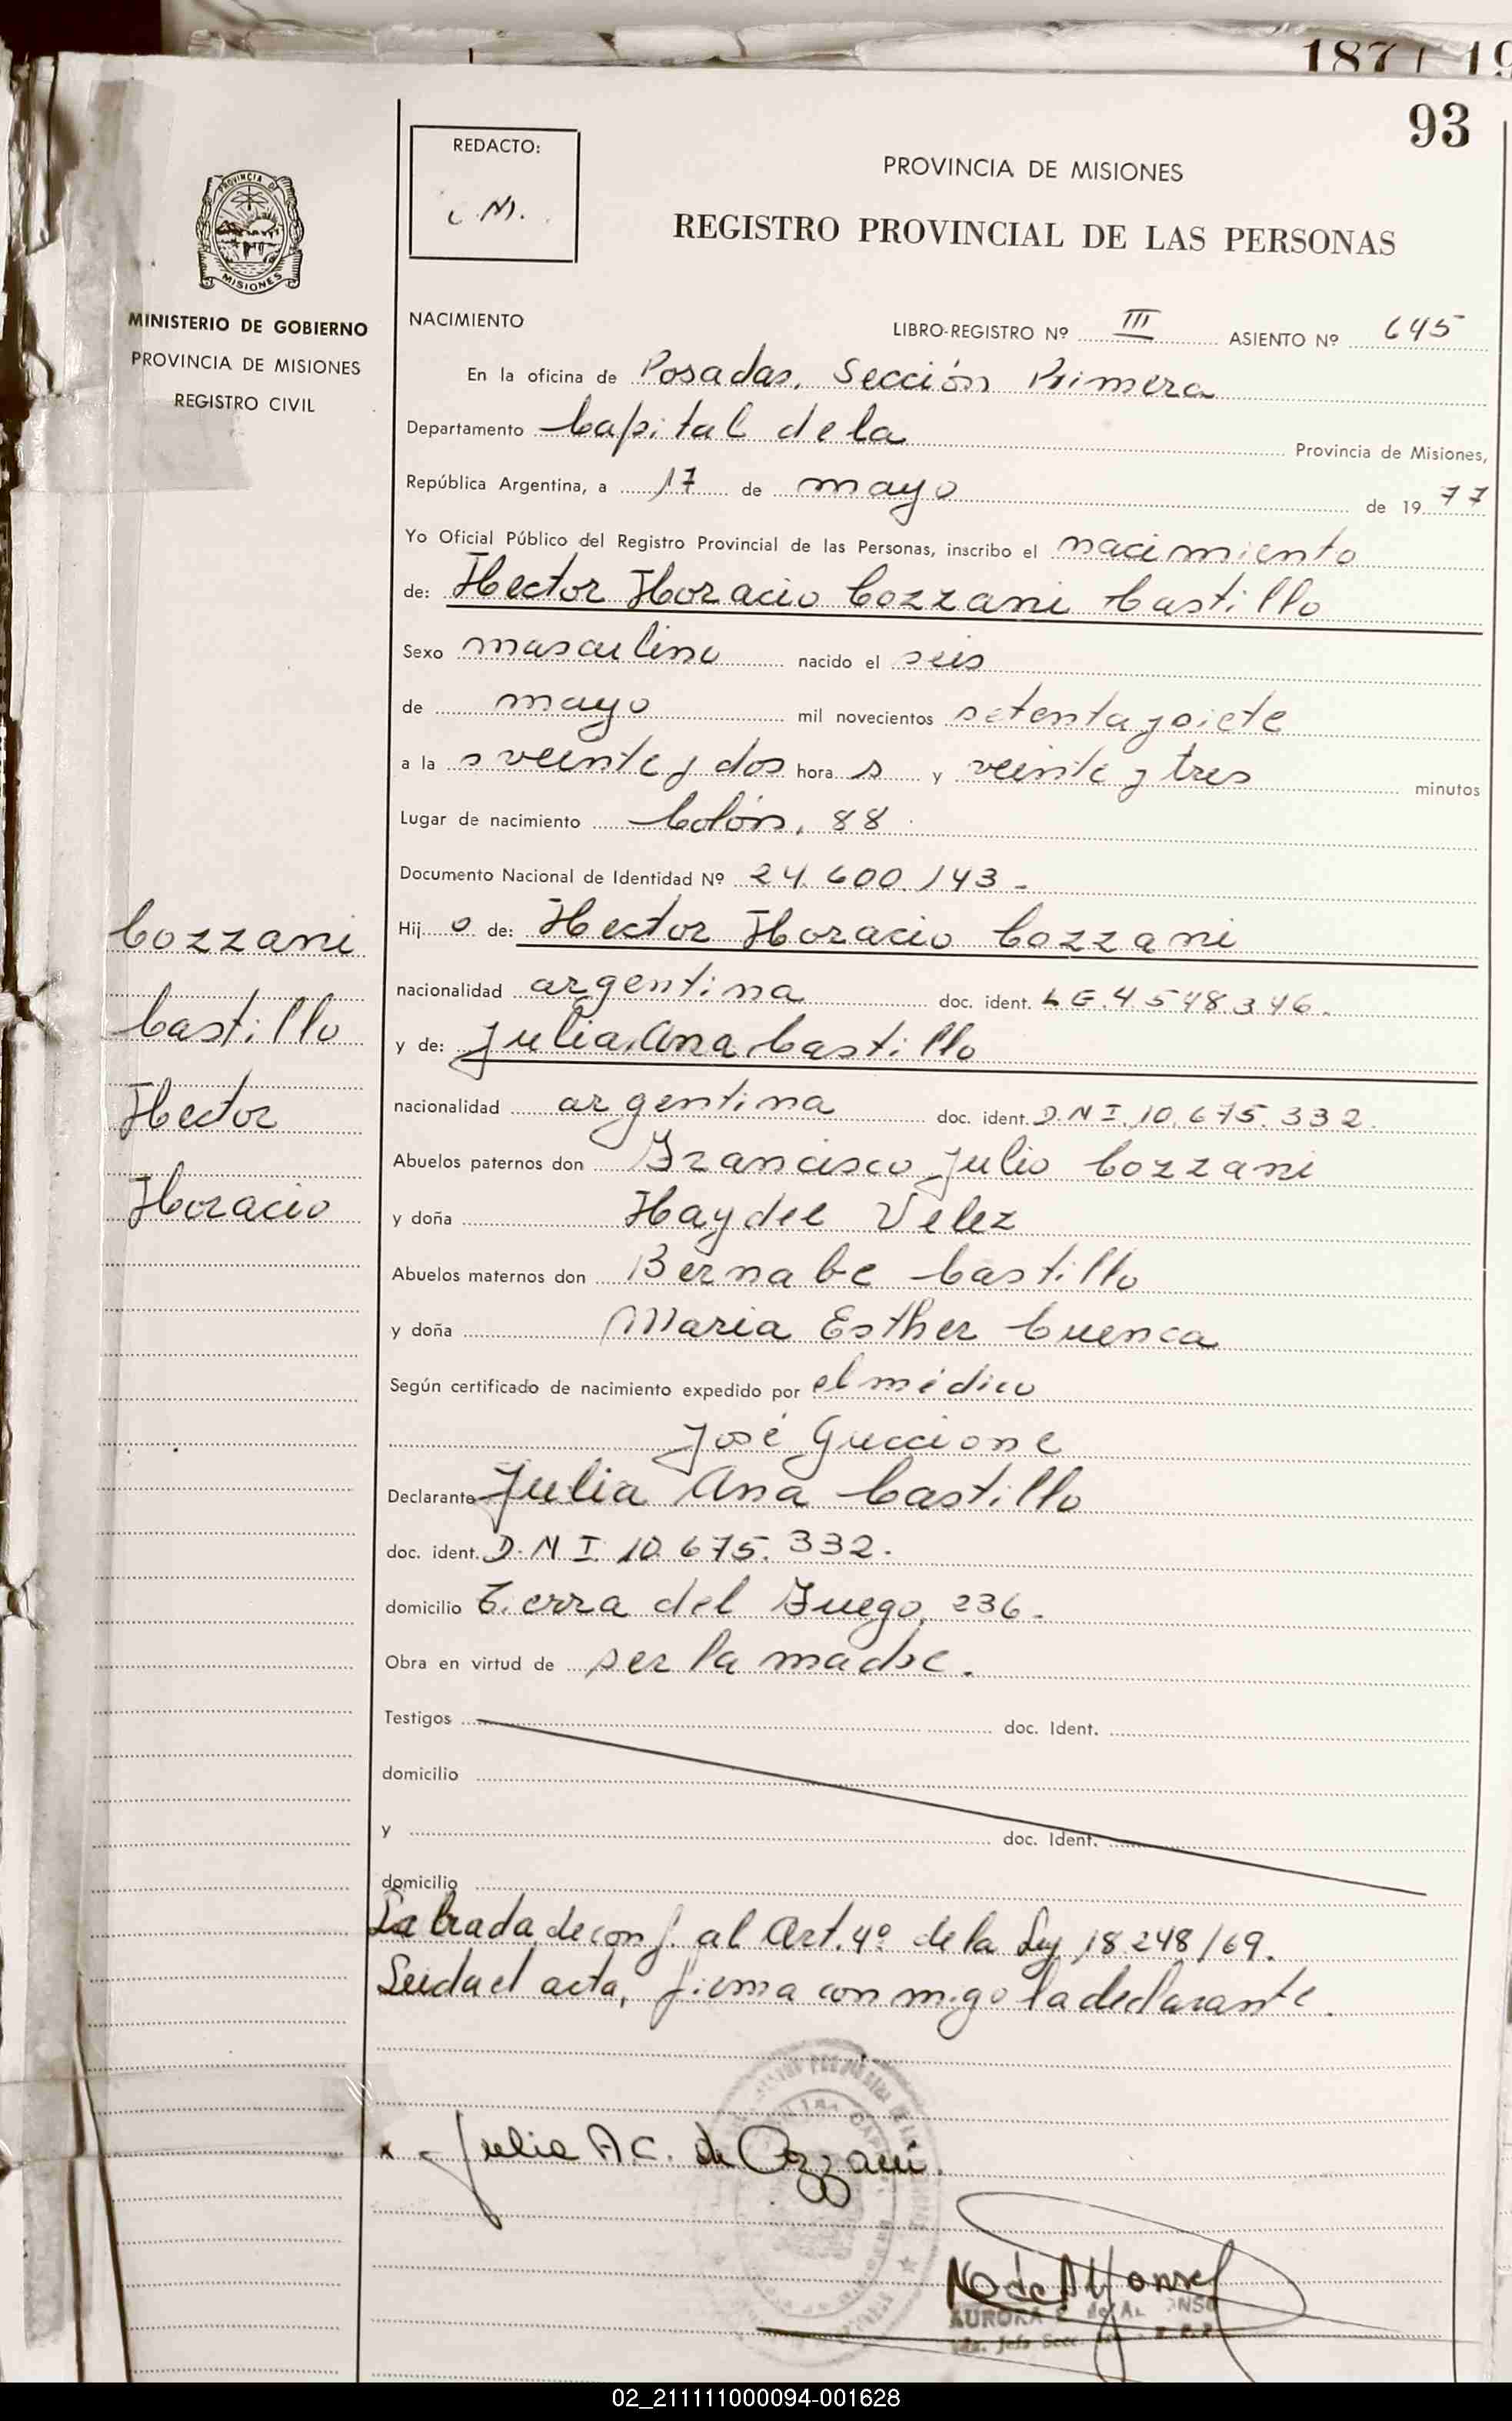 1871 19
93
REDACTO:
C.M.
PROVINCIA DE MISIONES
REGISTRO PROVINCIAL DE LAS PERSONAS
PROVINCIA DE
MISIONES
MINISTERIO DE GOBIERNO
PROVINCIA DE MISIONES
REGISTRO CIVIL
NACIMIENTO
LIBRO-REGISTRO Nº III ASIENTO Nº 645
En la oficina de Posadas, Sección Primera
Departamento Capital de la Provincia de Misiones,
República Argentina, a 17 de mayo de 1977
Yo Oficial Público del Registro Provincial de las Personas, inscribo el nacimiento
de: Hector Horacio Cozzani Castillo
Sexo masculino nacido el seis
de mayo mil novecientos setenta y siete
a la s veinte y dos hora s y veinte y tres minutos
Lugar de nacimiento Colón, 88
Documento Nacional de Identidad Nº 24.600.143-
Cozzani
Castillo
Hector
Horacio
Hij o de: Hector Horacio Cozzani
nacionalidad argentina doc. ident. L E. 4548346.
y de: Julia Ana Castillo
nacionalidad argentina doc. ident. D.N I. 10.675.332.
Abuelos paternos don Francisco Julio Cozzani
y doña Haydee Velez
Abuelos maternos don Bernabe Castillo
y doña Maria Esther Cuenca
Según certificado de nacimiento expedido por el médico
José Guccione
Declarante Julia Ana Castillo
doc. ident. D.N I. 10.675.332.
domicilio Tierra del Fuego, 236-
Obra en virtud de ser la madre.
Testigos doc. Ident.
domicilio
y doc. Ident.
domicilio
Labrada de conf. al Art. 4º de la Ley 18248/69.
Leida el acta, firma conmigo la declarante.
x Julia A C. de Cozzani.
AURORA de AL ONSO
Jefe Secc.
02_211111000094-001628